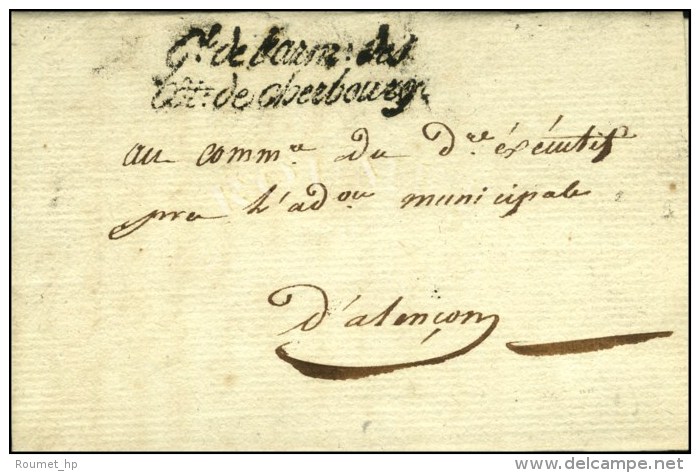 Gl. de l'arm. des
Côt. de Cherbourg
au commre du dre éxécutif
pres l'adon municipale
d'alençon
Roumet_hp
delcampe.net